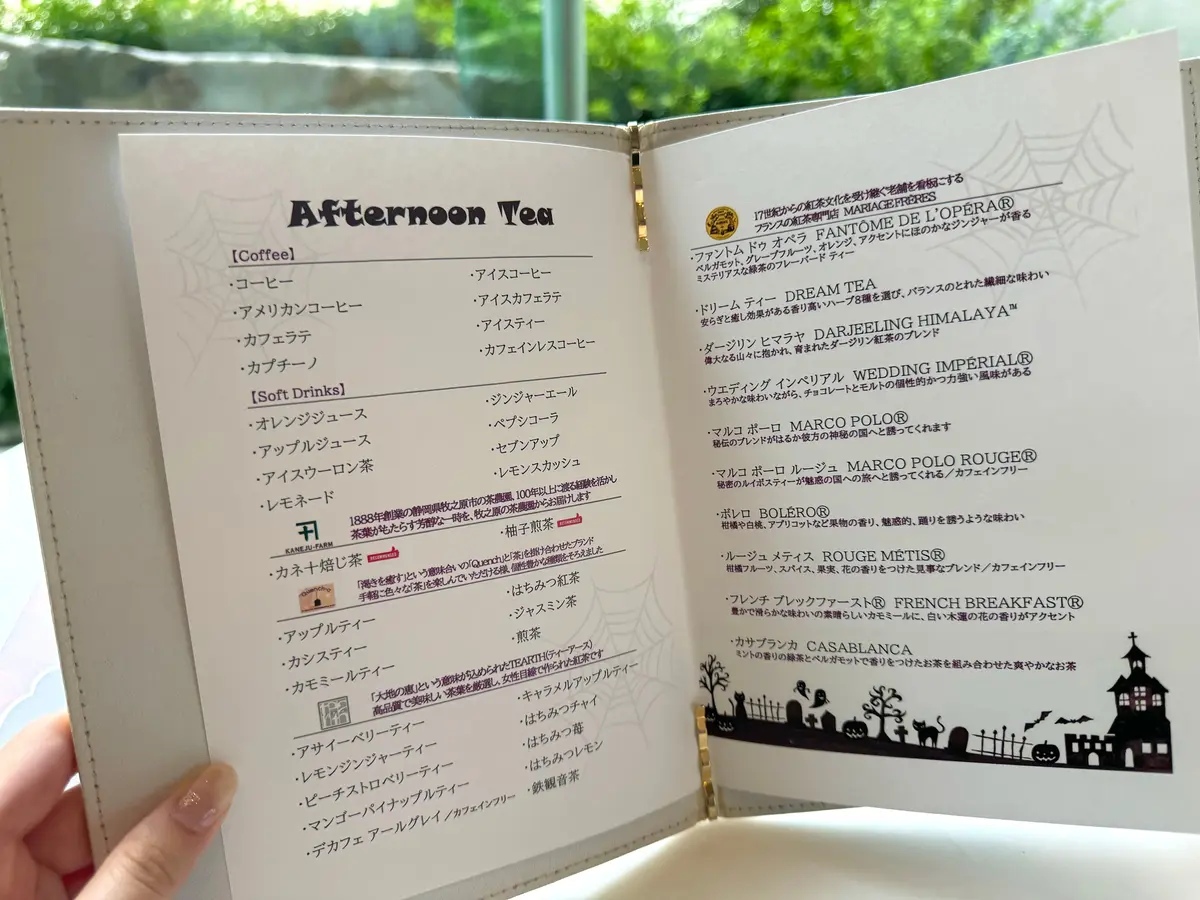 Afternoon Tea
【Coffee】
・コーヒー
・アメリカンコーヒー
・カフェラテ
・カプチーノ
・アイスコーヒー
・アイスカフェラテ
・アイスティー
・カフェインレスコーヒー
【Soft Drinks】
・オレンジジュース
・アップルジュース
・アイスウーロン茶
・レモネード
・ジンジャーエール
・ペプシコーラ
・セブンアップ
・レモンスカッシュ
KANEJU-FARM
1888年創業の静岡県牧之原市の茶農園、100年以上に渡る経験を活かし
茶葉がもたらす芳醇な一時を、牧之原の茶農園からお届けします
・カネ十焙じ茶 RECOMMENDED
・柚子煎茶 RECOMMENDED
「渇きを癒す」という意味合いの「Quench」と「茶」を掛け合わせたブランド
手軽に色々な「茶」を楽しんでいただける様、個性豊かな種類をそろえました
・アップルティー
・カシスティー
・カモミールティー
・はちみつ紅茶
・ジャスミン茶
・煎茶
「大地の恵」という意味が込められたTEARTH(ティーアース)
高品質で美味しい茶葉を厳選し、女性目線で作られた紅茶です
・アサイーベリーティー
・レモンジンジャーティー
・ピーチストロベリーティー
・マンゴーパイナップルティー
・デカフェ アールグレイ /カフェインフリー
・キャラメルアップルティー
・はちみつチャイ
・はちみつ苺
・はちみつレモン
・鉄観音茶
17世紀からの紅茶文化を受け継ぐ老舗を看板にする
フランスの紅茶専門店 MARIAGE FRÈRES
・ファントム ドゥ オペラ FANTÔME DE L'OPÉRA®
ベルガモット、グレープフルーツ、オレンジ、アクセントにほのかなジンジャーが香る
ミステリアスな緑茶のフレーバード ティー
・ドリーム ティー DREAM TEA
安らぎと癒し効果がある香り高いハーブ8種を選び、バランスのとれた繊細な味わい
・ダージリン ヒマラヤ DARJEELING HIMALAYA™
偉大なる山々に抱かれ、育まれたダージリン紅茶のブレンド
・ウエディング インペリアル WEDDING IMPÉRIAL®
まろやかな味わいながら、チョコレートとモルトの個性的かつ力強い風味がある
・マルコ ポーロ MARCO POLO®
秘伝のブレンドがはるか彼方の神秘の国へと誘ってくれます
・マルコ ポーロ ルージュ MARCO POLO ROUGE®
秘密のルイボスティーが魅惑の国への旅へと誘ってくれる／カフェインフリー
・ボレロ BOLÉRO®
柑橘や白桃、アプリコットなど果物の香り、魅惑的、踊りを誘うような味わい
・ルージュ メティス ROUGE MÉTIS®
柑橘フルーツ、スパイス、果実、花の香りをつけた見事なブレンド／カフェインフリー
・フレンチ ブレックファースト® FRENCH BREAKFAST®
豊かで滑らかな味わいの素晴らしいカモミールに、白い木蓮の花の香りがアクセント
・カサブランカ CASABLANCA
ミントの香りの緑茶とベルガモットで香りをつけたお茶を組み合わせた爽やかなお茶